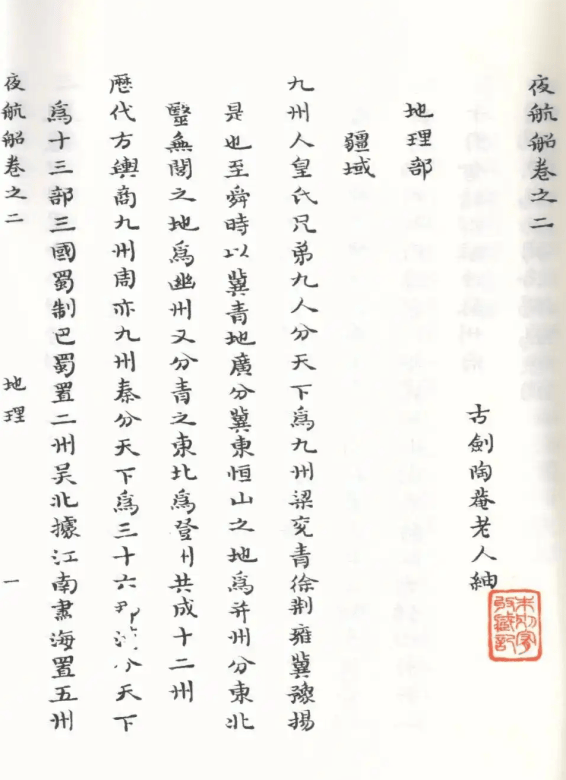 夜航船卷之二
古劍陶菴老人紬
地理部
疆域
九州人皇氏兄弟九人分天下爲九州梁兗青徐荆雍冀豫揚
是也至舜時以冀青地廣分冀東恒山之地爲并州分東北
毉無閭之地爲幽州又分青之東北爲登州共成十二州
歷代方輿商九州周亦九州秦分天下爲三十六郡漢分天下
爲十三部三國蜀制巴蜀置二州吴北據江南盡海置五州
夜航船卷之二 地理 一